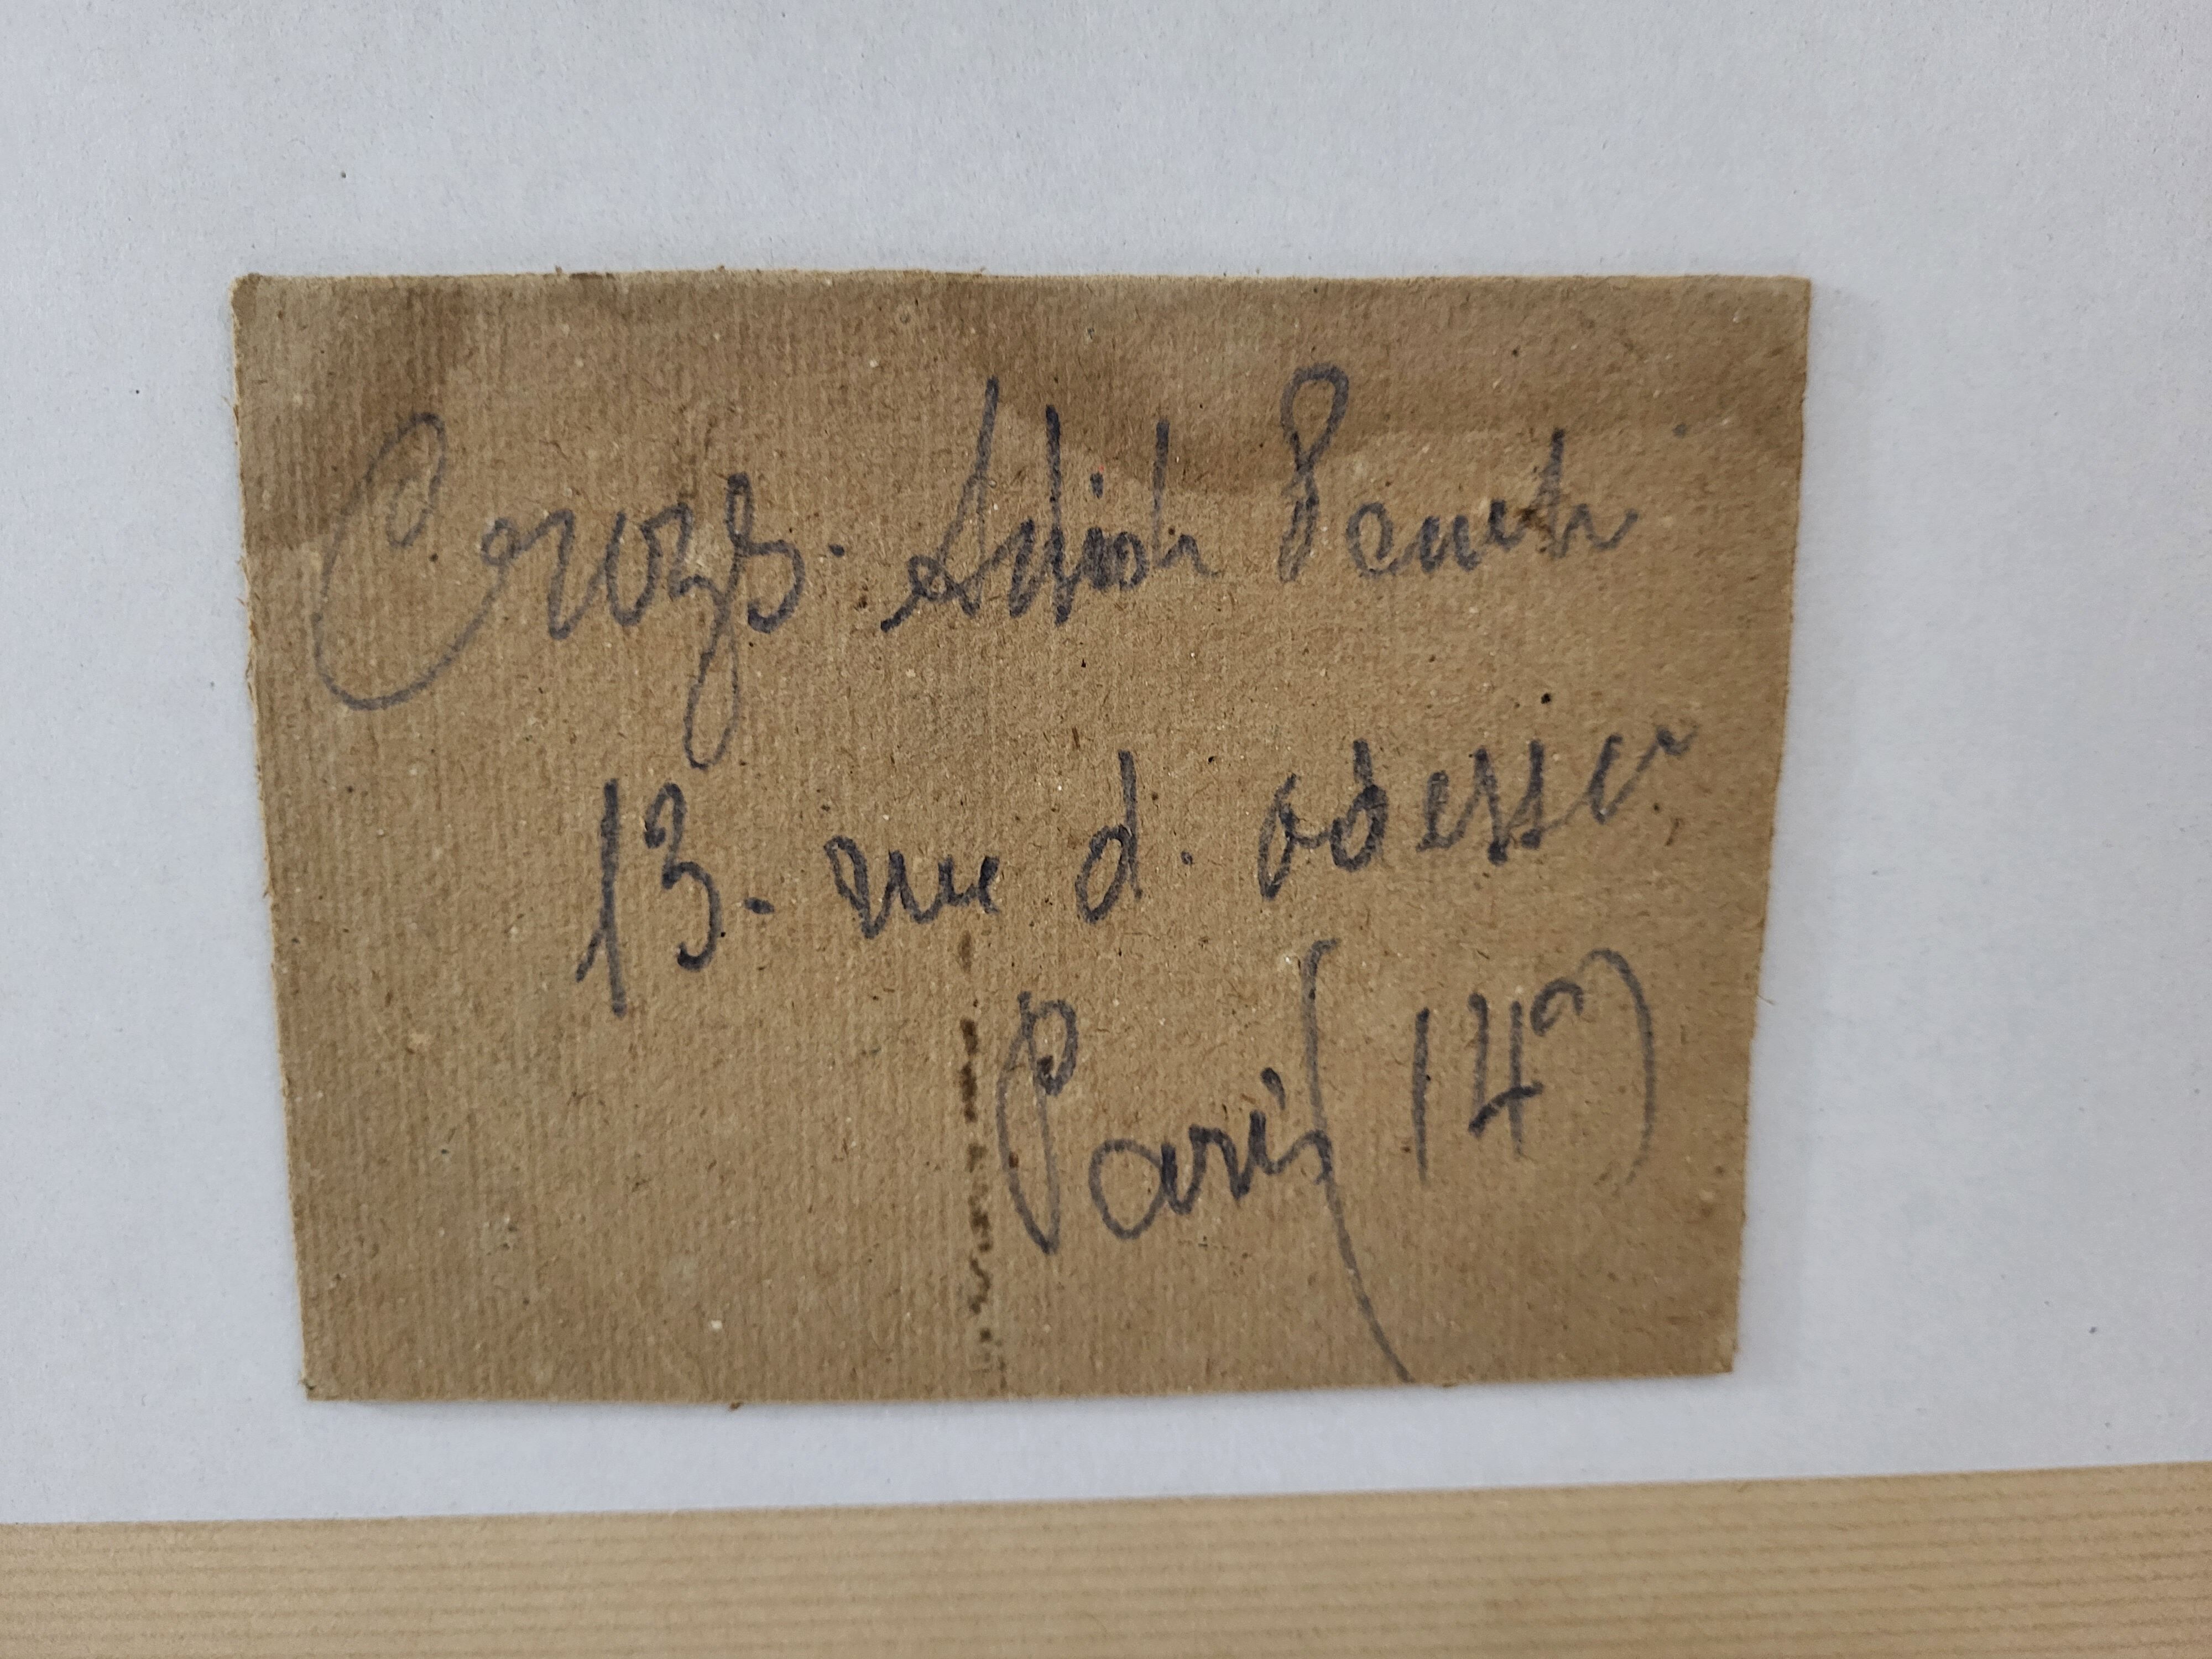 Crozs. Artiste Peintre
13. rue d. odessa
Paris (14e)